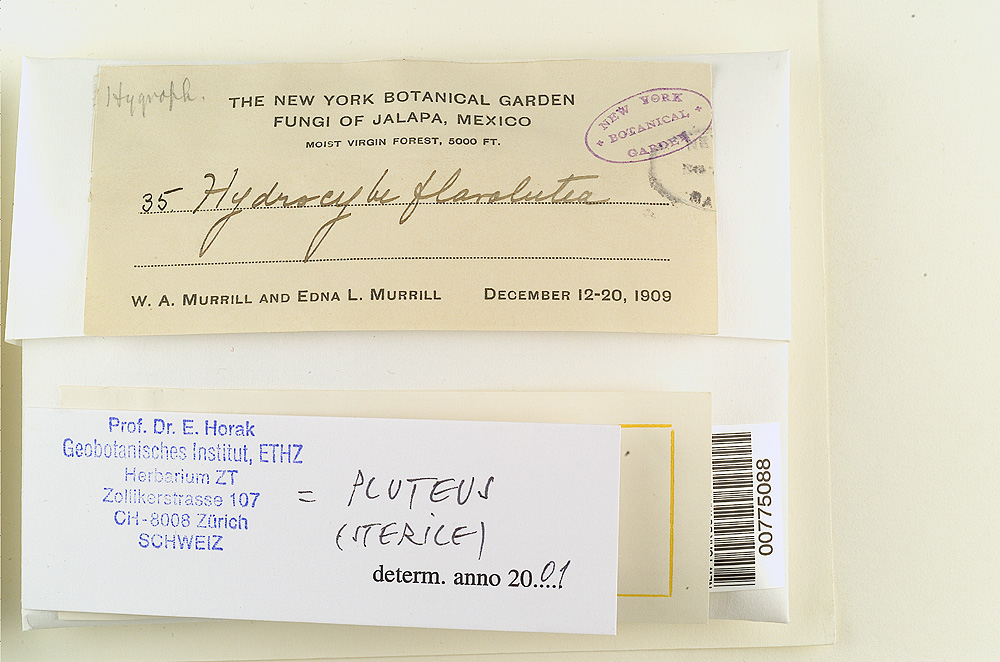 Hygroph.
THE NEW YORK BOTANICAL GARDEN
FUNGI OF JALAPA, MEXICO
MOIST VIRGIN FOREST, 5000 FT.
NEW YORK
BOTANICAL
GARDEN
35. Hydrocybe flavolutea
W. A. MURRILL AND EDNA L. MURRILL DECEMBER 12-20, 1909
Prof. Dr. E. Horak
Geobotanisches Institut, ETHZ
Herbarium ZT
Zollikerstrasse 107
CH-8008 Zürich
SCHWEIZ
= PLUTEUS
(STERILE)
determ. anno 20.01
00775088